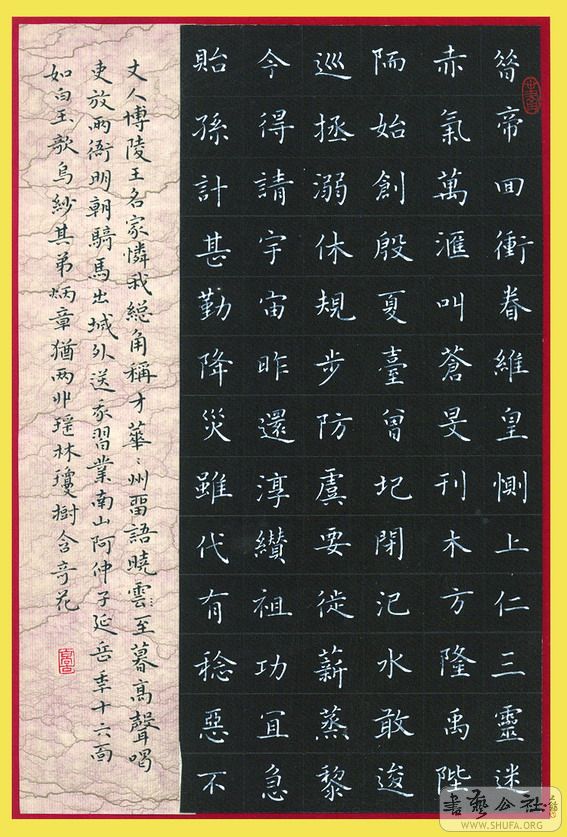 昔帝回衝眷維皇惻上仁三靈迷
赤氣萬滙叫蒼旻刊木方隆禹陛
陑始創殷夏臺曾圮閉汜水敢逡
巡拯溺休規步防虞要徙薪蒸黎
今得請宇宙昨還淳纘祖功宜急
貽孫計甚勤降災雖代有稔惡不
丈人博陵王名家憐我総角稱才華〻州留語曉雲至暮高聲喝
吏放兩衙明朝騎馬出城外送我習業南山阿仲子延岳年十六面
如白玉欹烏紗其弟炳章猶两丱瑤林瓊樹含奇花
書藝公社
WWW.SHUFA.ORG